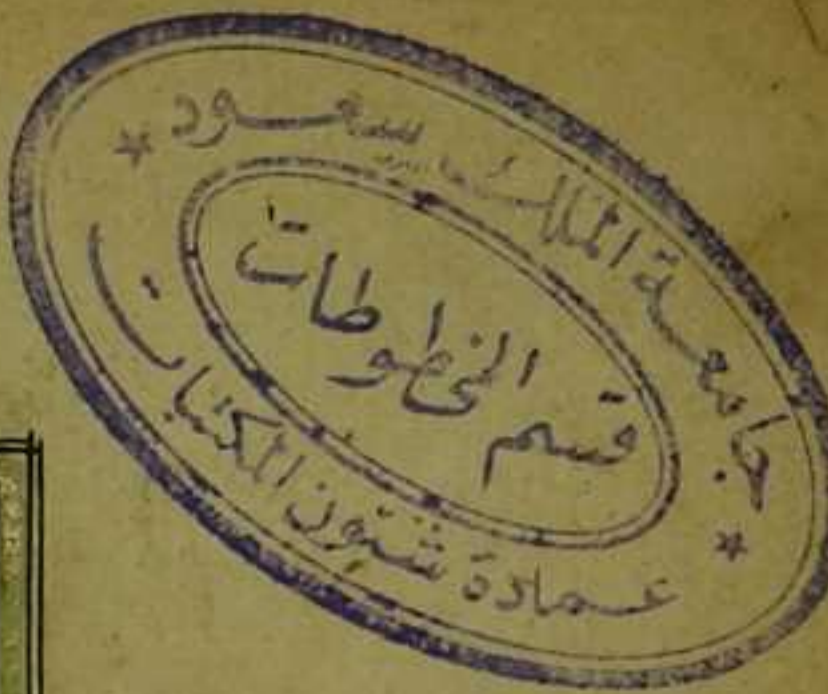 * جامعة الملك سعود *
قسم المخطوطات
عمادة شئون المكتبات